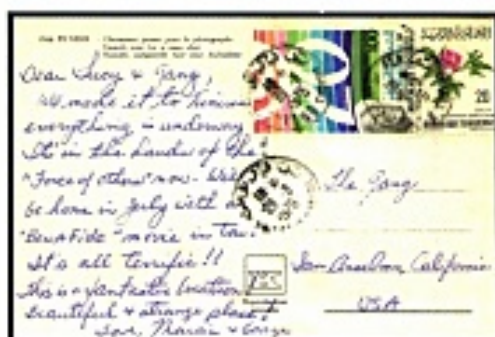 Dear Lucy & Gang,
We made it to Tunisia
everything is underway
It is in the hands of the
"Force of others" now - We'll
be home in July with a
"BONAFIDE" movie in tow.
It's all Terrific!!
This is a fantastic location
beautiful & strange place!
Love, Marcia & George
The Gang
San Anselmo California
USA
20